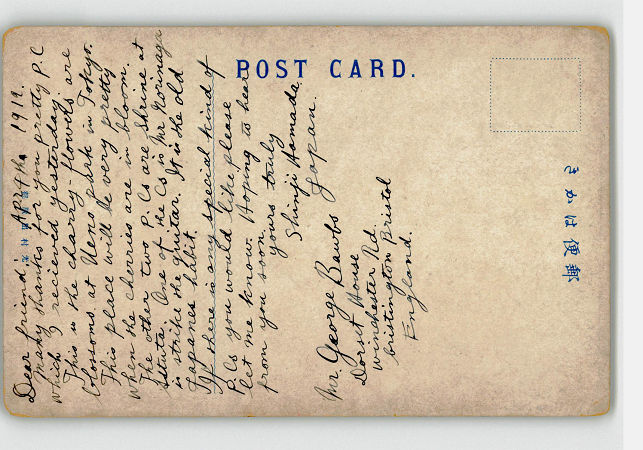 POST CARD.
きかは便郵
Dear friend, Apr 4th 1919.
many thanks for you pretty P.C
which I recieved yesterday.
This is the charry-flowers are
blossoms at Ueno park in Tokyo.
This place will be very pretty
when the cherries are in bloom.
The other two P.Cs are Shrine at
One of the Cs is Mr Morinaga
is strike the guitar. It is the old
Japanes habit.
If there is any special kind of
P.Cs you would like please
let me know. Hoping to hear
from you soon.
yours truly
Shinji Hamada
Japan.
Mr. George
Dorset House
Winchester Rd
brislington Bristol
England.